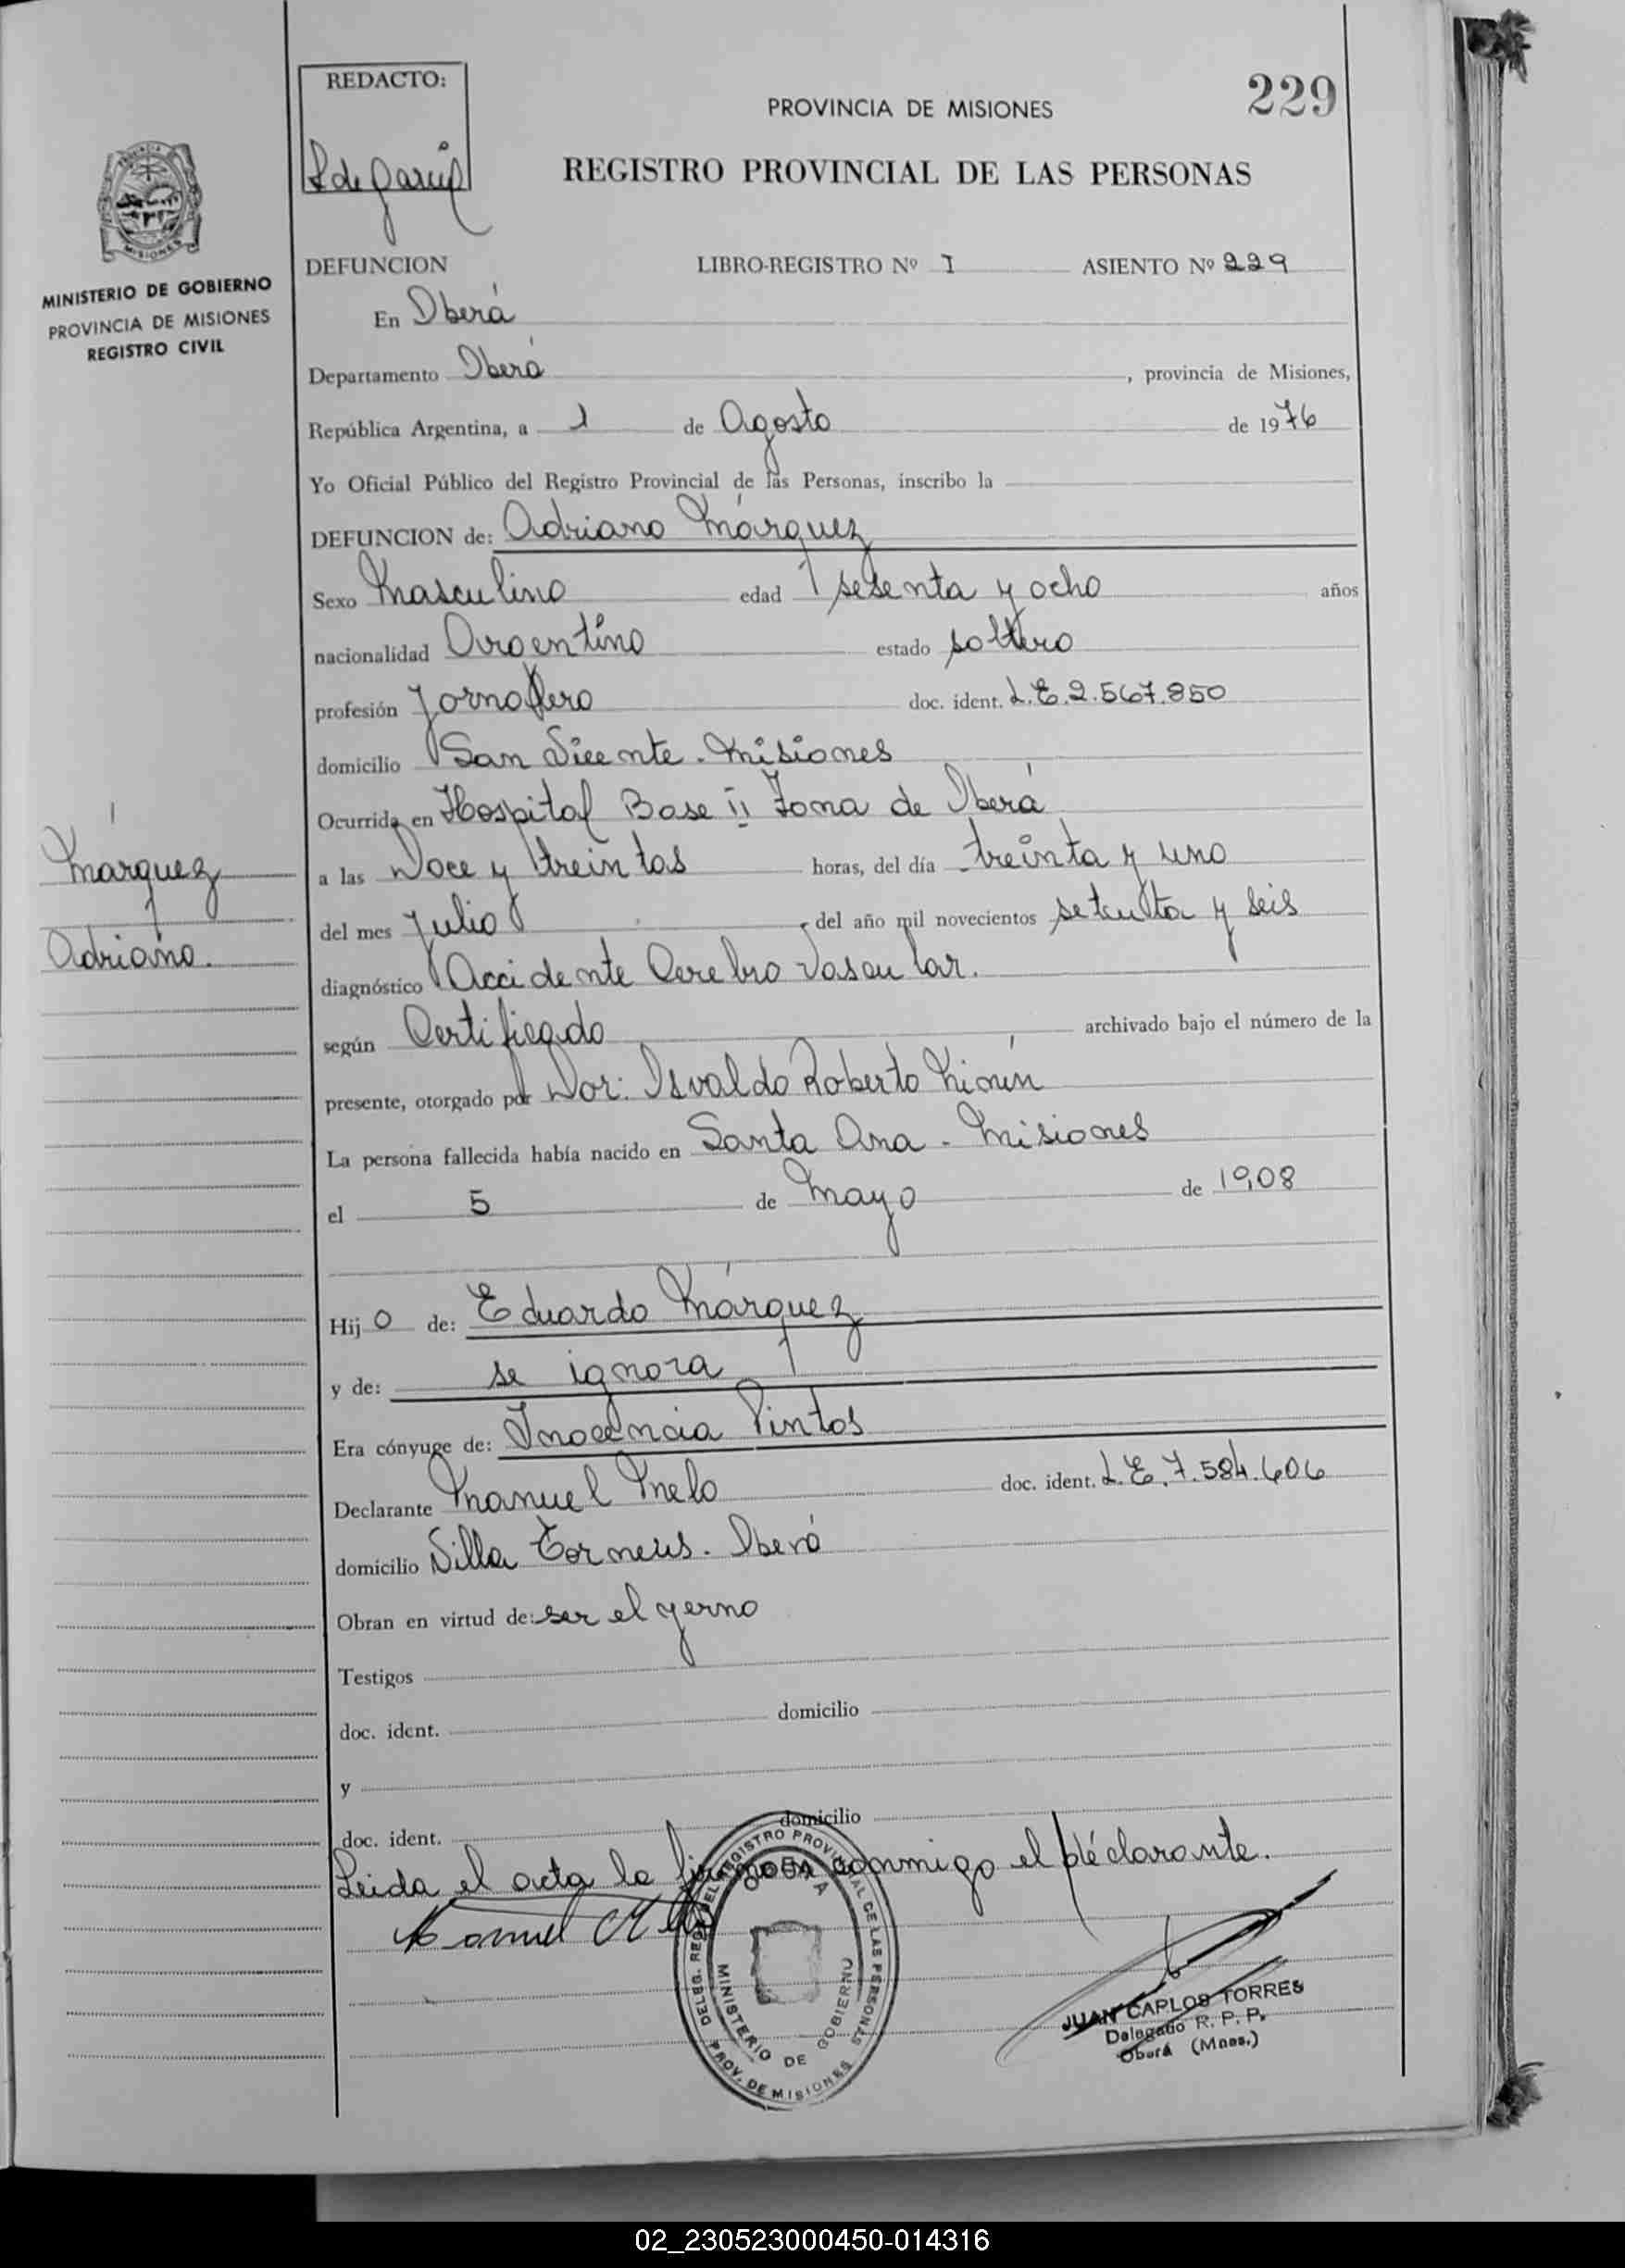 REDACTO:
229
PROVINCIA DE MISIONES
REGISTRO PROVINCIAL DE LAS PERSONAS
MISIONES
MINISTERIO DE GOBIERNO
PROVINCIA DE MISIONES
REGISTRO CIVIL
DEFUNCION LIBRO-REGISTRO Nº I ASIENTO Nº 229
En Oberá
Departamento Oberá, provincia de Misiones,
República Argentina, a 1 de Agosto de 1976
Yo Oficial Público del Registro Provincial de las Personas, inscribo la
DEFUNCION de: Adriano Márquez
Sexo Masculino edad sesenta y ocho años
nacionalidad Argentino estado soltero
profesión Jornalero doc. ident. L.E. 2.567.850
domicilio San Vicente - Misiones
Ocurrida en Hospital Base II Zona de Oberá
Márquez
Adriano.
a las Doce y treintas horas, del día treinta y uno
del mes Julio del año mil novecientos setenta y seis
diagnóstico Accidente Cerebro Vascular.
según Certificado archivado bajo el número de la
presente, otorgado por Dor: Osvaldo Roberto
La persona fallecida había nacido en Santa Ana - Misiones
el 5 de Mayo de 1908
Hijo de: Eduardo Márquez
y de: se ignora
Era cónyuge de: Inocencia Pintos
Declarante Manuel Melo doc. ident. L.E. 7.584.606
domicilio Villa Torneus. Oberá
Obran en virtud de: ser el yerno
Testigos
doc. ident. domicilio
y
doc. ident. domicilio
Leida el acta la firma conmigo el déclarante.
Manuel Melo
DELEG. REG. DEL REGISTRO PROVINCIAL DE LAS PERSONAS
OBERA
MINISTERIO DE GOBIERNO
PROV. DE MISIONES
JUAN CARLOS TORRES
Delegado R. P. P.
Oberá (Mnes.)
02_230523000450-014316